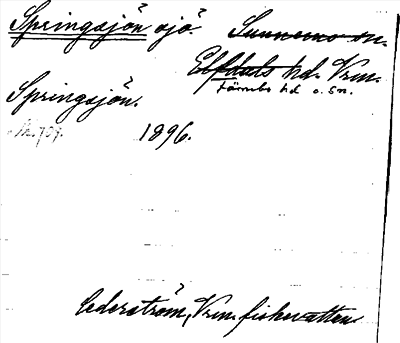 Springsjön sjö.
Sunnemo sn.
Elfdals hd. Vrm.
Färnebo hd o. sn.
Springsjön.
1896.
Cederström, Vrm fiskevatten